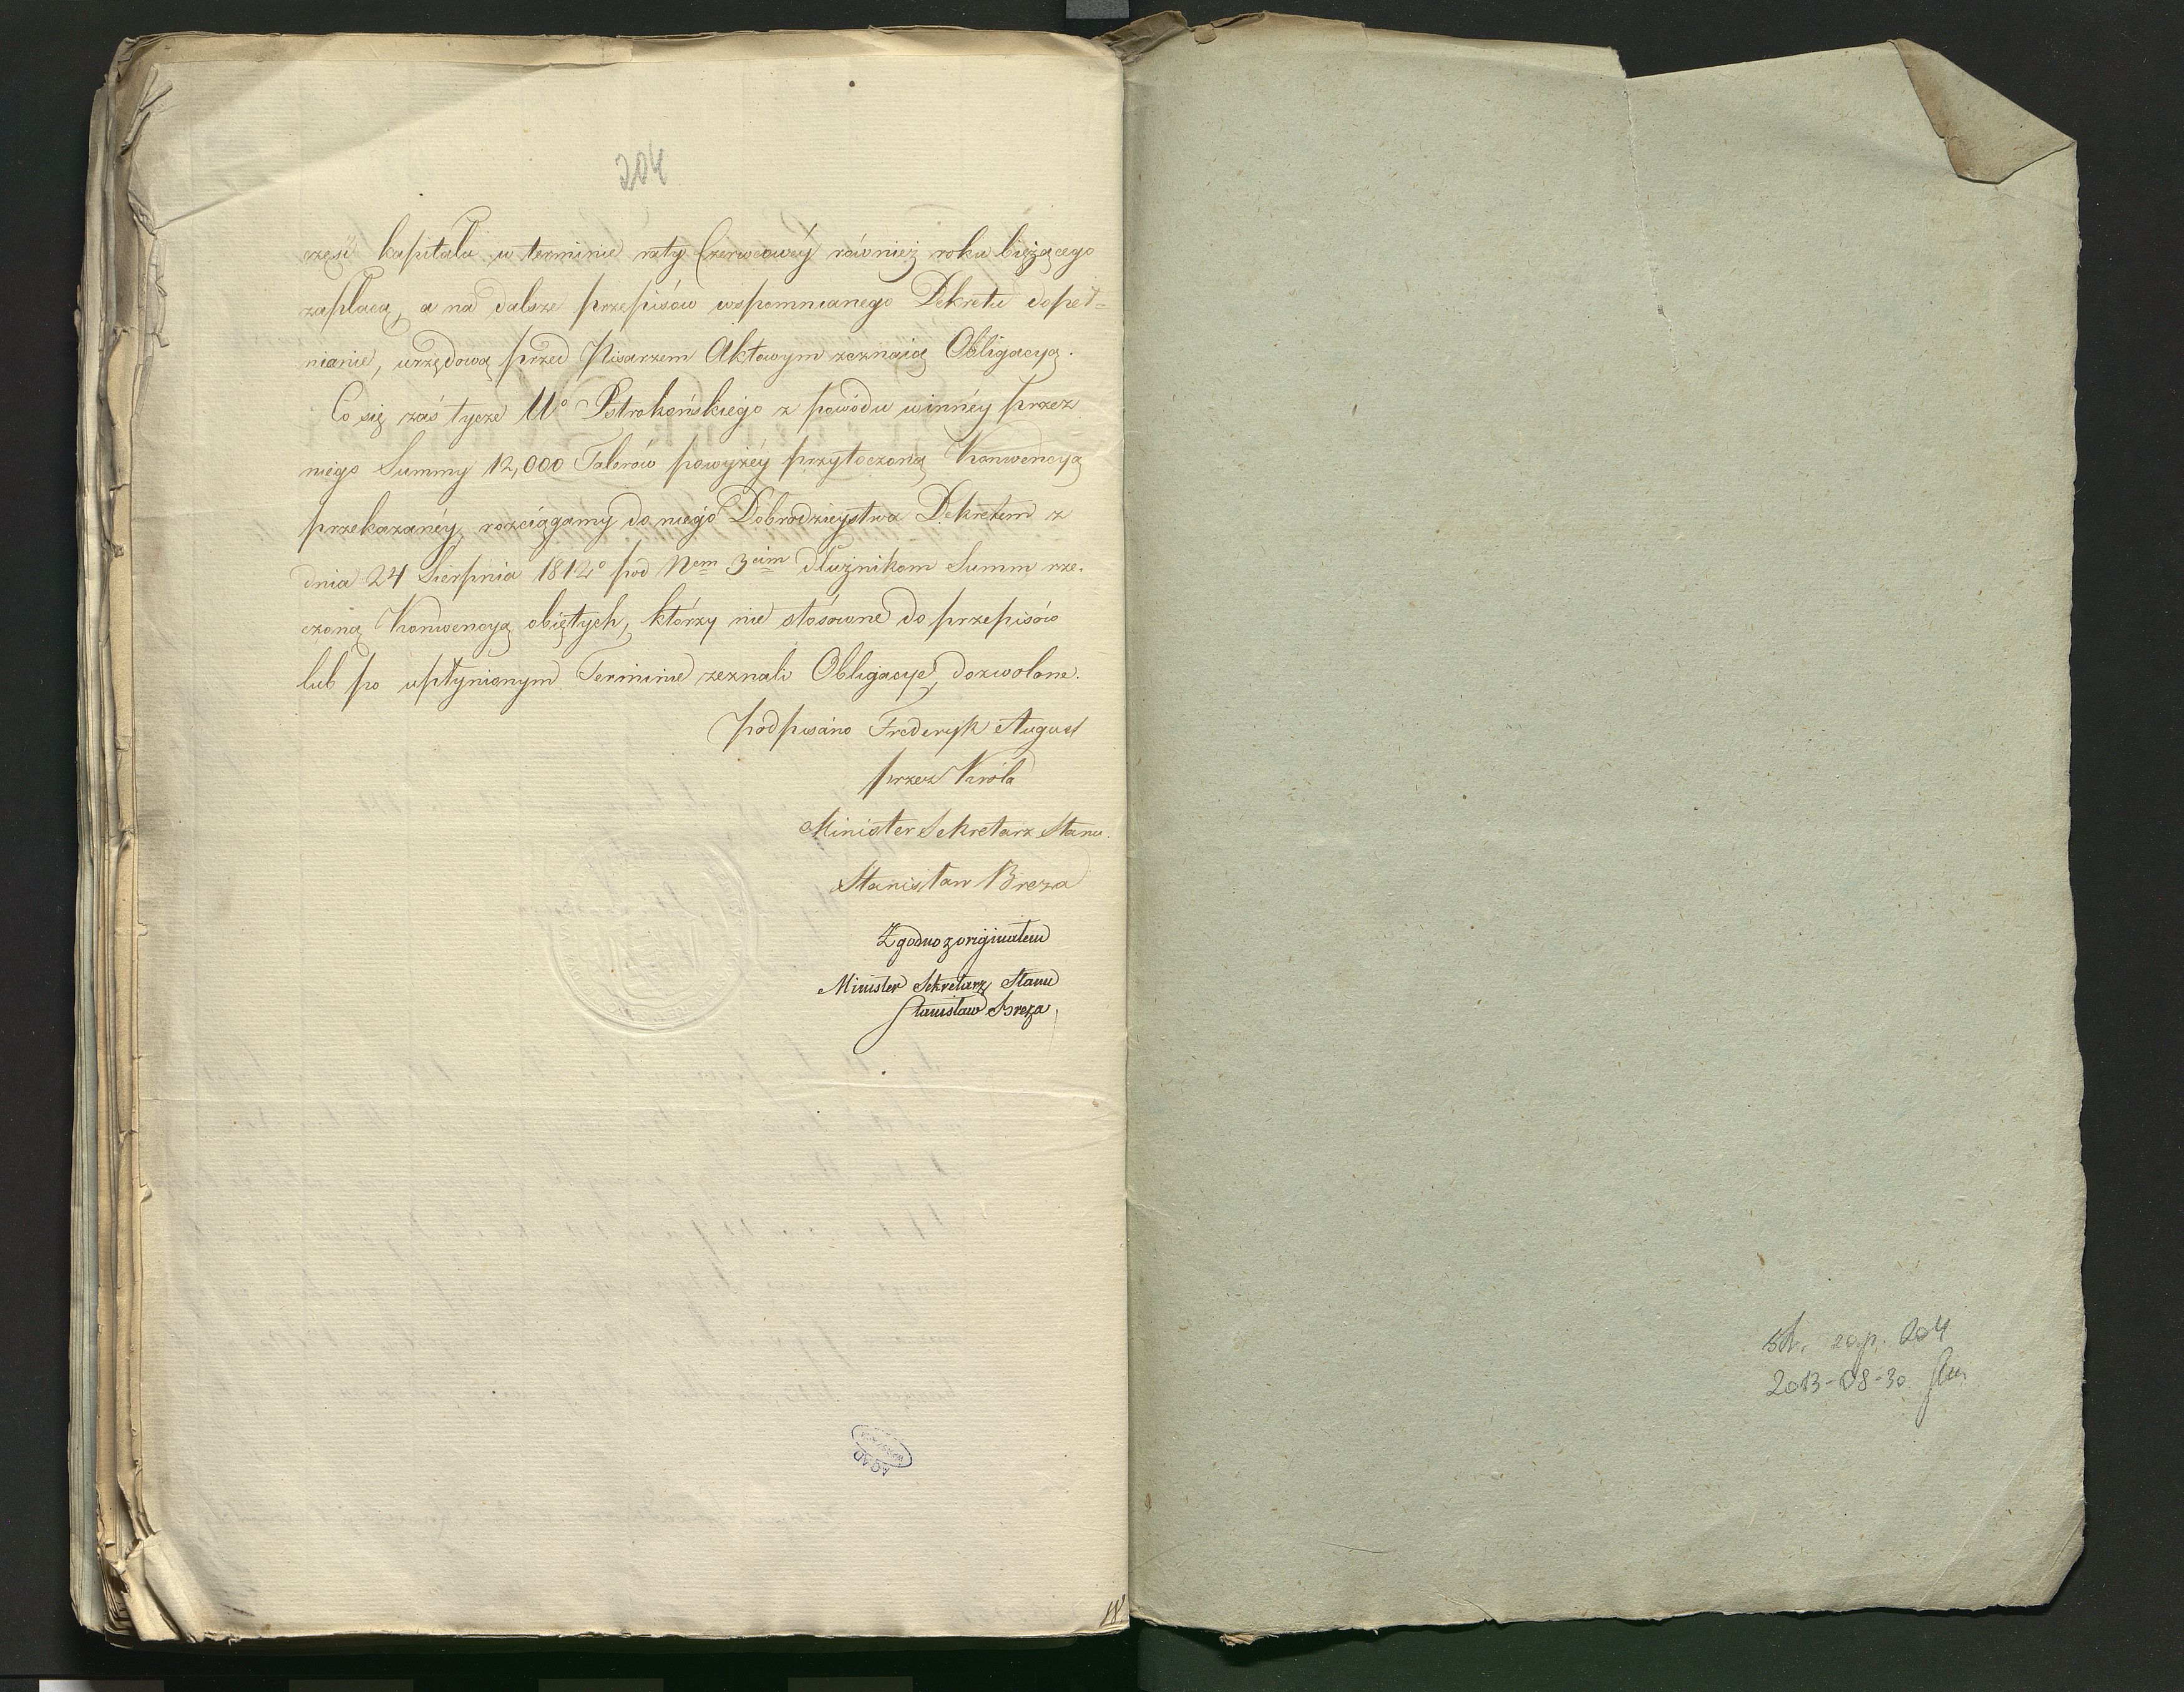 204
część kapitału w terminie raty Czerwcowéy również roku bieżącego
zapłacą, a na dalsze przepisów wspomnianego Dekretu dopeł=
nianie, urzędową przed Pisarzem Aktowym zeznaią Obligacyą.
Co się zaś tycze Uº Pstrokońskiego z powodu winnéy przez
niego Summy 12,000 Talerów powyżéy przytoczoną Konwencyą
przekazanéy, rozciągamy do niego Dobrodzieystwa Dekretem z
dnia 24 Sierpnia 1812º pod Nem 3cim dłużnikom Summ rze-
czoną Konwencyą obiętych, którzy nie stósowne do przepisów
lub po upłynionym Terminie zeznali Obligacye, dozwolone.
podpisano Frederyk August
przez Króla
Minister Sekretarz Stanu.
Stanisław Breza
Zgodno z originałem
Minister Sekretarz Stanu
Stanisław Breza.
AGAD
WARSZAWA
str. zap. 204
2013-08-30